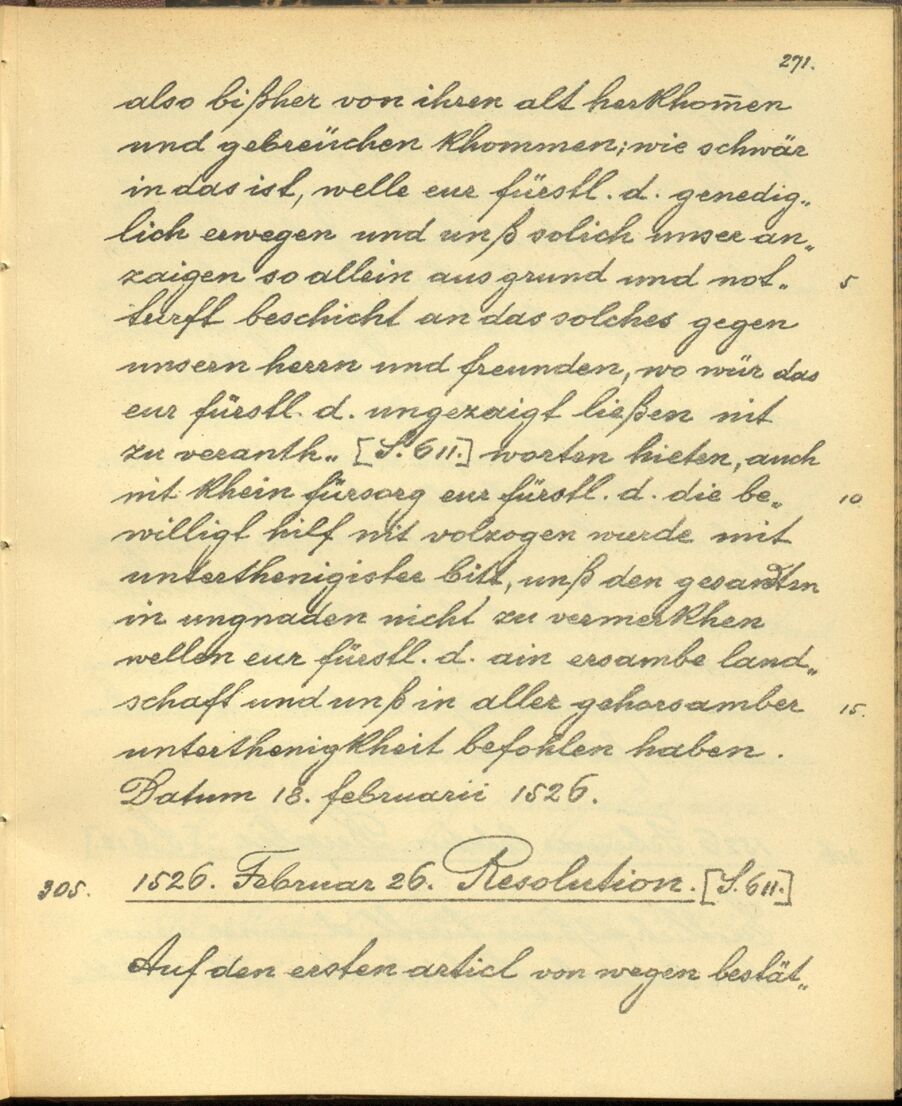 271.
also bißher von ihren alt herkhom̄en
und gebreüchen khommen; wie schwär
in das ist, welle eur fürstl. d. genedig„
lich erwegen und unß solich unser an„
zaigen so allein aus grund und not„ 5
turft beschicht an das solches gegen
unsern herrn und freunden, wo wür das
eur fürstl. d. ungezaigt ließen nit
zu veranth„ [S. 611.] worten hieten, auch
nit khein fürsorg eur fürstl. d. die be„ 10
willigt hilf nit volzogen wurde mit
unterthenigister bitt, unß den gesandten
in ungnaden nicht zu vermerkhen
wellen eur fürstl. d. ain ersambe land„
schaft und unß in aller gehorsamber 15.
unterthenigkheit befohlen haben.
Datum 18. februarii 1526.
305. 1526. Februar 26. Resolution. [S. 611.]
Auf den ersten articl von wegen bestät„